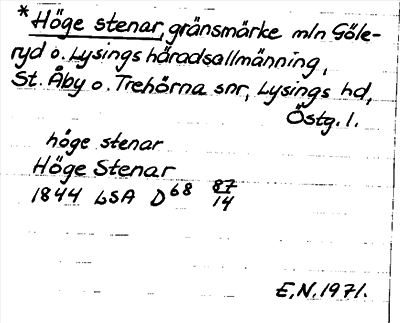 *Höge stenar, gränsmärke mln Göle-
ryd o. Lysings häradsallmänning,
St. Åby o. Trehörna snr, Lysings hd,
Östg. l.
höge stenar
Höge Stenar
1844 LSA D68 87/14
E.N. 1971.